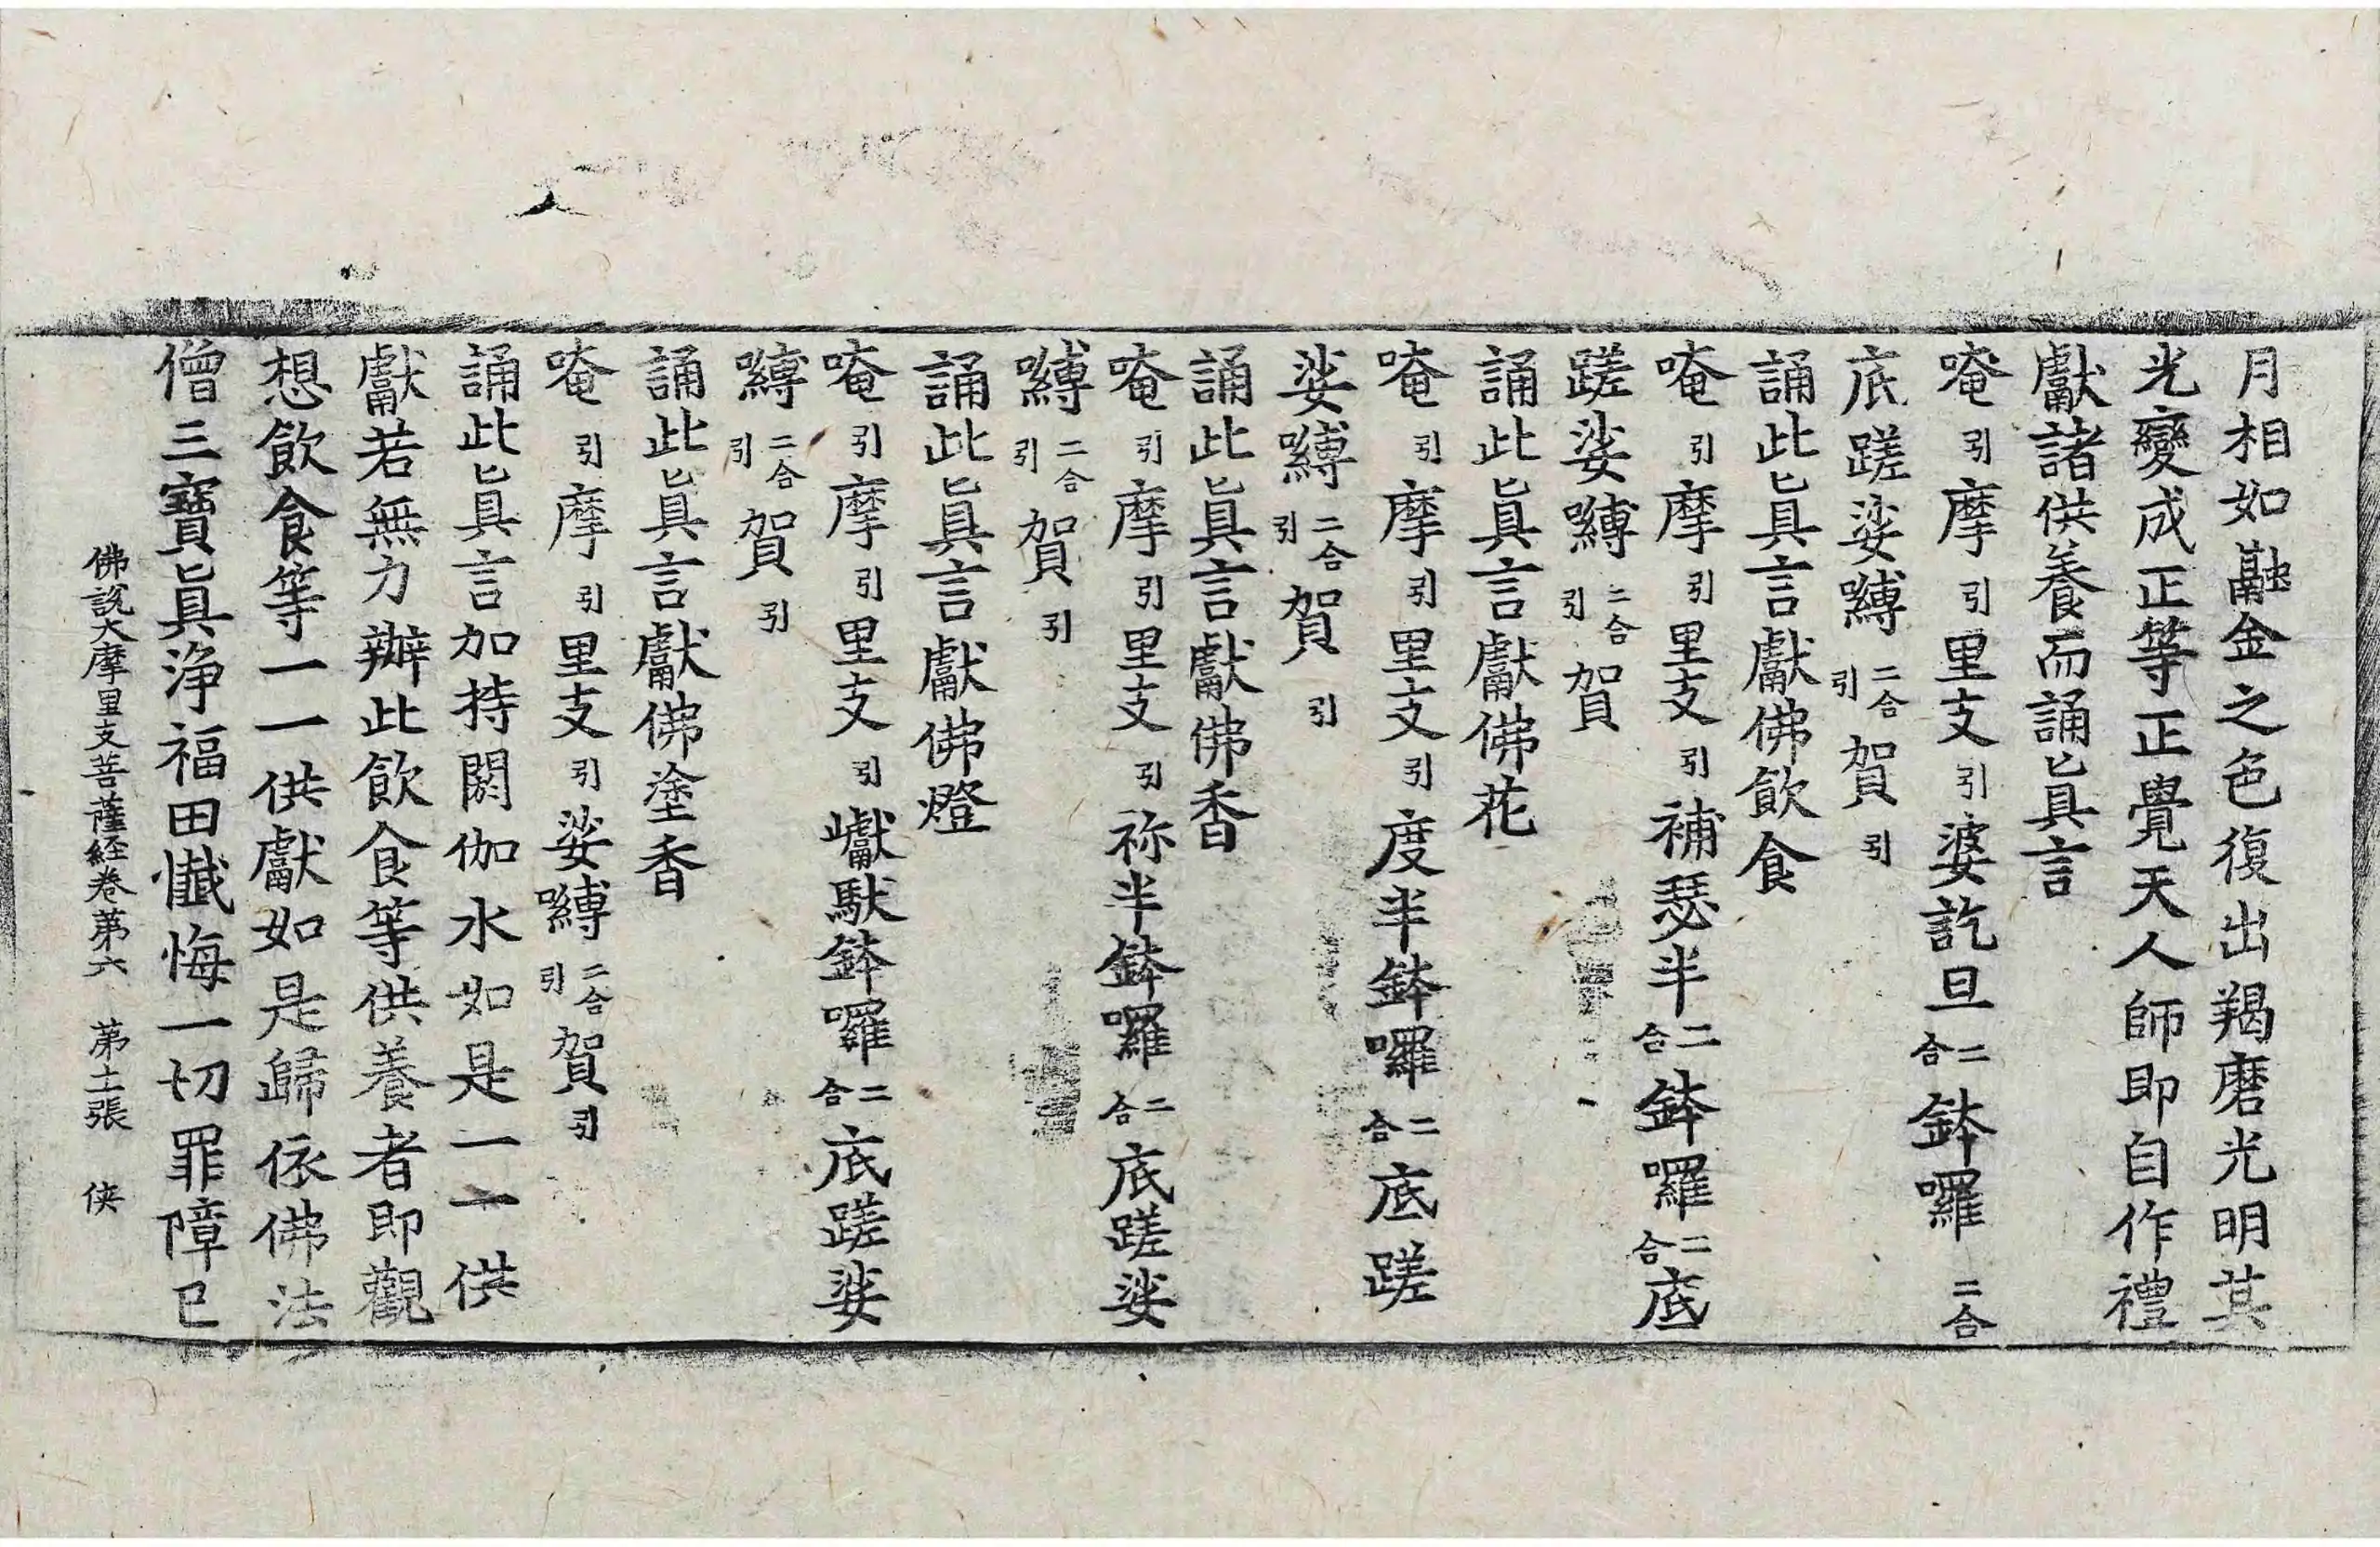 月相如融金之色復出羯磨光明其
光變成正等正覺天人師即自作禮
獻諸供養而誦眞言
唵引摩引里支引婆訖旦二合鉢囉二合
底蹉娑嚩二合引賀引
誦此眞言獻佛飲食
唵引摩引里支引補瑟半二合鉢囉二合底
蹉娑嚩二合引賀
誦此眞言獻佛花
唵引摩引里支引度半鉢囉二合底蹉
娑嚩二合引賀引
誦此眞言獻佛香
唵引摩引里支引祢半鉢囉二合底蹉娑
嚩二合引賀引
誦此眞言獻佛燈
唵引摩引里支引巘馱鉢囉二合底蹉娑
嚩二合引賀引
誦此眞言獻佛塗香
唵引摩引里支引娑嚩二合引賀引
誦此眞言加持閼伽水如是一一供
獻若無力辦此飲食等供養者即觀
想飲食等一一供獻如是歸依佛法
僧三寶眞淨福田懺悔一切罪障已
佛說大摩里支菩薩經卷第六 第十二張 俠